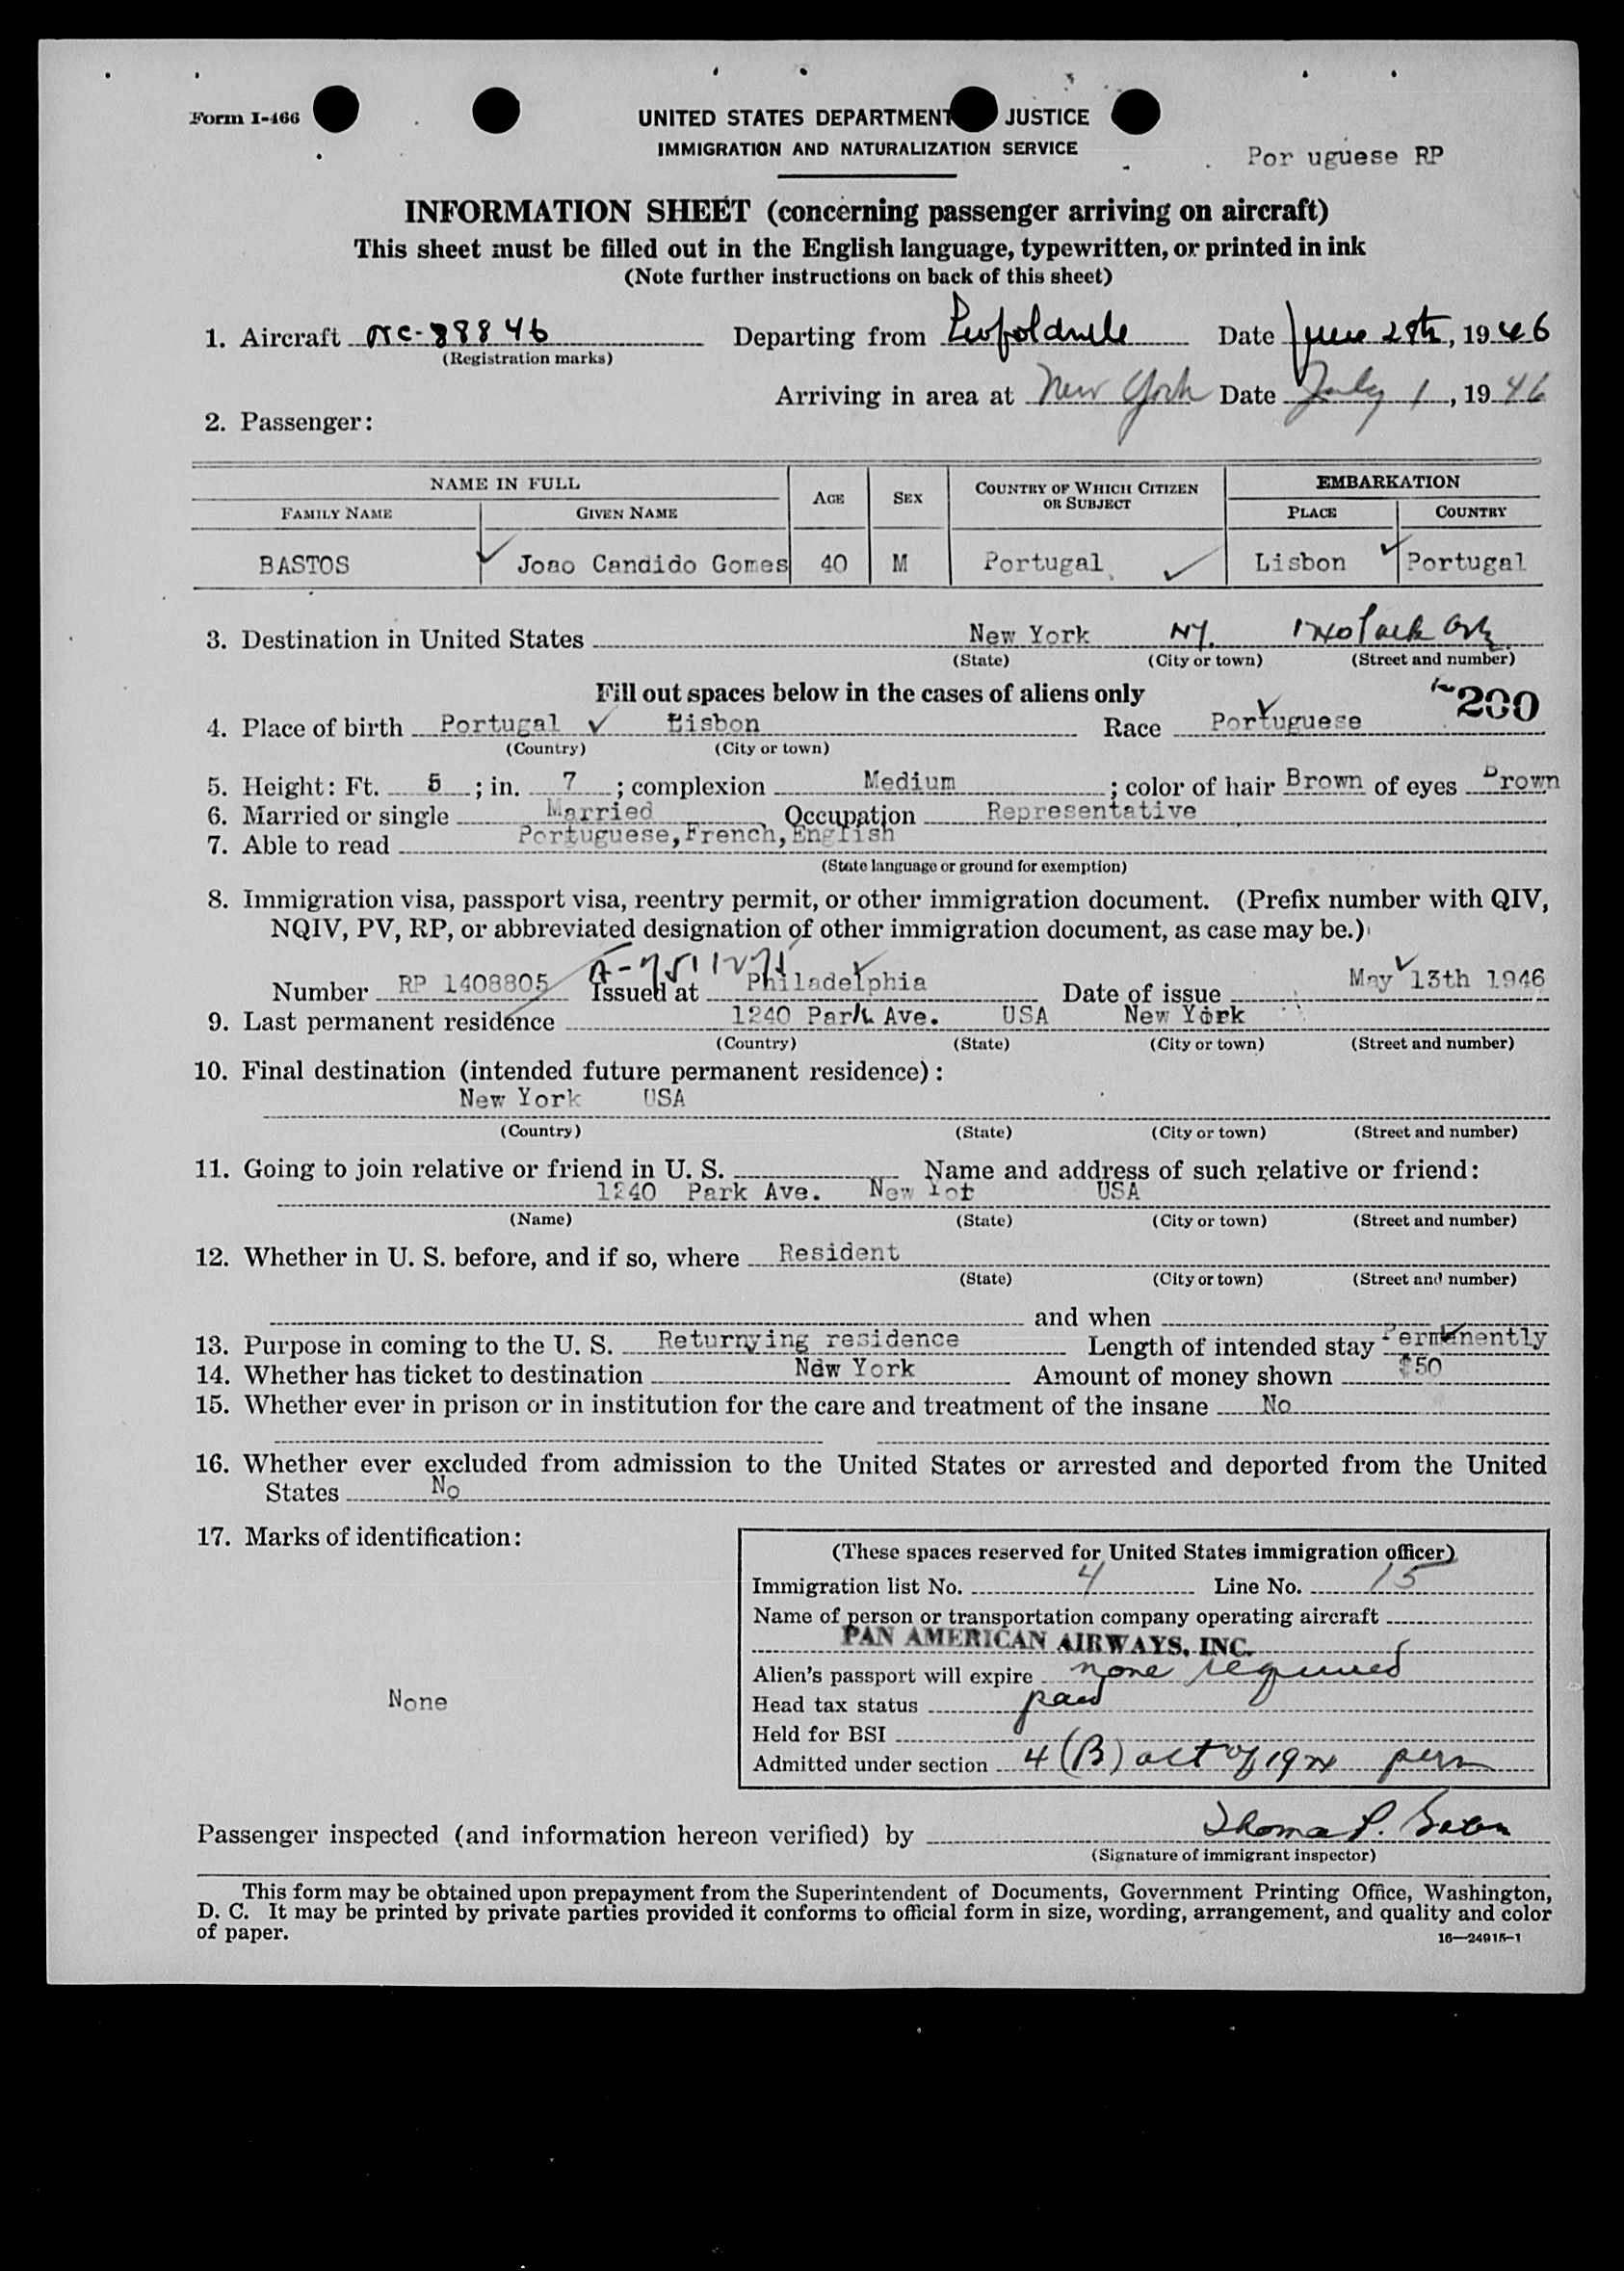 Form I-466
UNITED STATES DEPARTMENT JUSTICE
IMMIGRATION AND NATURALIZATION SERVICE
Por uguese RP
INFORMATION SHEET (concerning passenger arriving on aircraft)
This sheet must be filled out in the English language, typewritten, or printed in ink
(Note further instructions on back of this sheet)
1. Aircraft NC-88846 Departing from Leopoldville Date June 28th, 1946
(Registration marks)
Arriving in area at New York Date July 1, 1946
2. Passenger:
NAME IN FULL AGE SEX COUNTRY OF WHICH CITIZEN OR SUBJECT EMBARKATION
FAMILY NAME GIVEN NAME PLACE COUNTRY
BASTOS Joao Candido Gomes 40 M Portugal Lisbon Portugal
3. Destination in United States New York NY. 1240 Park
(State) (City or town) (Street and number)
Fill out spaces below in the cases of aliens only
200
4. Place of birth Portugal Lisbon Race Portuguese
(Country) (City or town)
5. Height: Ft. 5; in. 7; complexion Medium; color of hair Brown of eyes Brown
6. Married or single Married Occupation Representative
7. Able to read Portuguese, French, English
(State language or ground for exemption)
8. Immigration visa, passport visa, reentry permit, or other immigration document. (Prefix number with QIV,
NQIV, PV, RP, or abbreviated designation of other immigration document, as case may be.)
Number RP 1408805 Issued at Philadelphia Date of issue May 13th 1946
9. Last permanent residence 1240 Park Ave. USA New York
(Country) (State) (City or town) (Street and number)
10. Final destination (intended future permanent residence):
New York USA
(Country) (State) (City or town) (Street and number)
11. Going to join relative or friend in U. S. Name and address of such relative or friend:
1240 Park Ave. New Yot USA
(Name) (State) (City or town) (Street and number)
12. Whether in U. S. before, and if so, where Resident
(State) (City or town) (Street and number)
and when
13. Purpose in coming to the U. S. Returnying residence Length of intended stay Permanently
14. Whether has ticket to destination New York Amount of money shown $50
15. Whether ever in prison or in institution for the care and treatment of the insane No
16. Whether ever excluded from admission to the United States or arrested and deported from the United
States No
17. Marks of identification:
None
(These spaces reserved for United States immigration officer)
Immigration list No. 4 Line No. 15
Name of person or transportation company operating aircraft
PAN AMERICAN AIRWAYS, INC.
Alien's passport will expire none required
Head tax status paid
Held for BSI
Admitted under section 4 (B) act of 1924 perm
Passenger inspected (and information hereon verified) by Thomas P.
(Signature of immigrant inspector)
This form may be obtained upon prepayment from the Superintendent of Documents, Government Printing Office, Washington,
D. C. It may be printed by private parties provided it conforms to official form in size, wording, arrangement, and quality and color
of paper.
16—24915-1